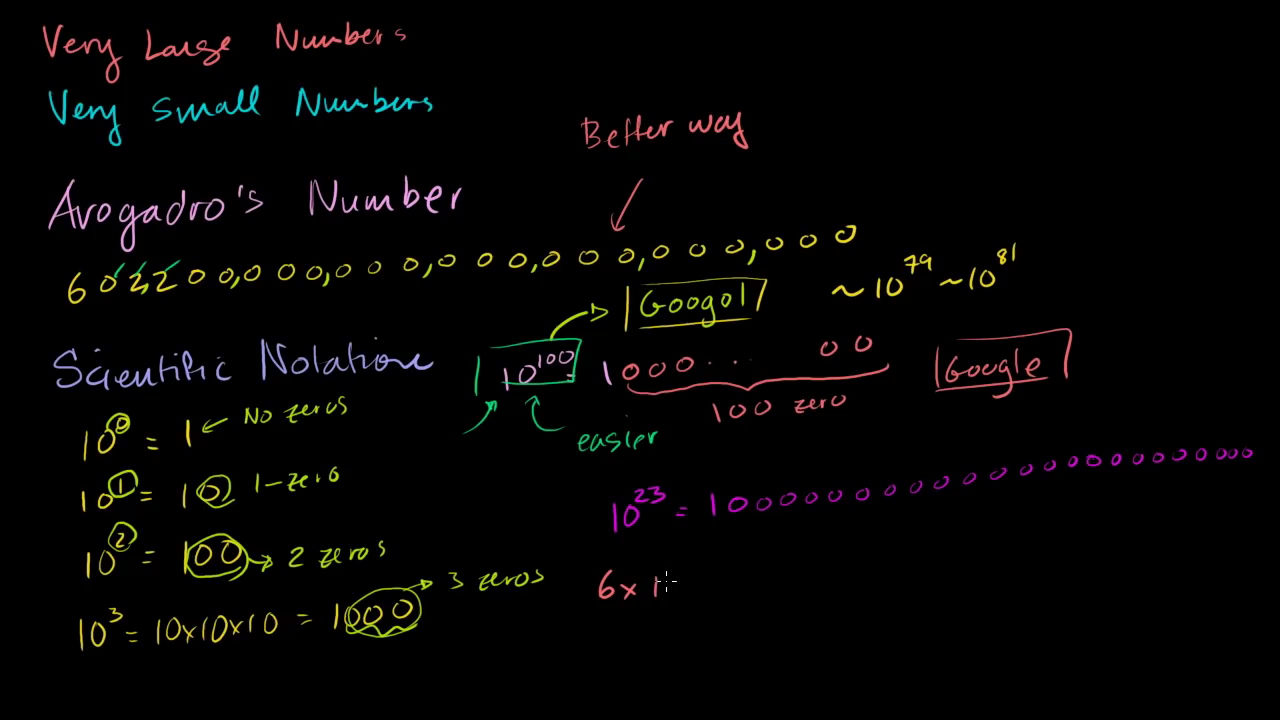 Very Large Numbers
Very Small Numbers
Better way
Avogadro's Number
602,200,000,000,000,000,000,000
Googol
~10^79 ~10^81
Scientific Notation
10^100 = 1000... 00
Google
100 zero
easier
10^0 = 1 No zeros
10^1 = 10 1-zero
10^23 = 100000000000000000000000
10^2 = 100 → 2 zeros
10^3 = 10x10x10 = 1000 → 3 zeros
6 x 1